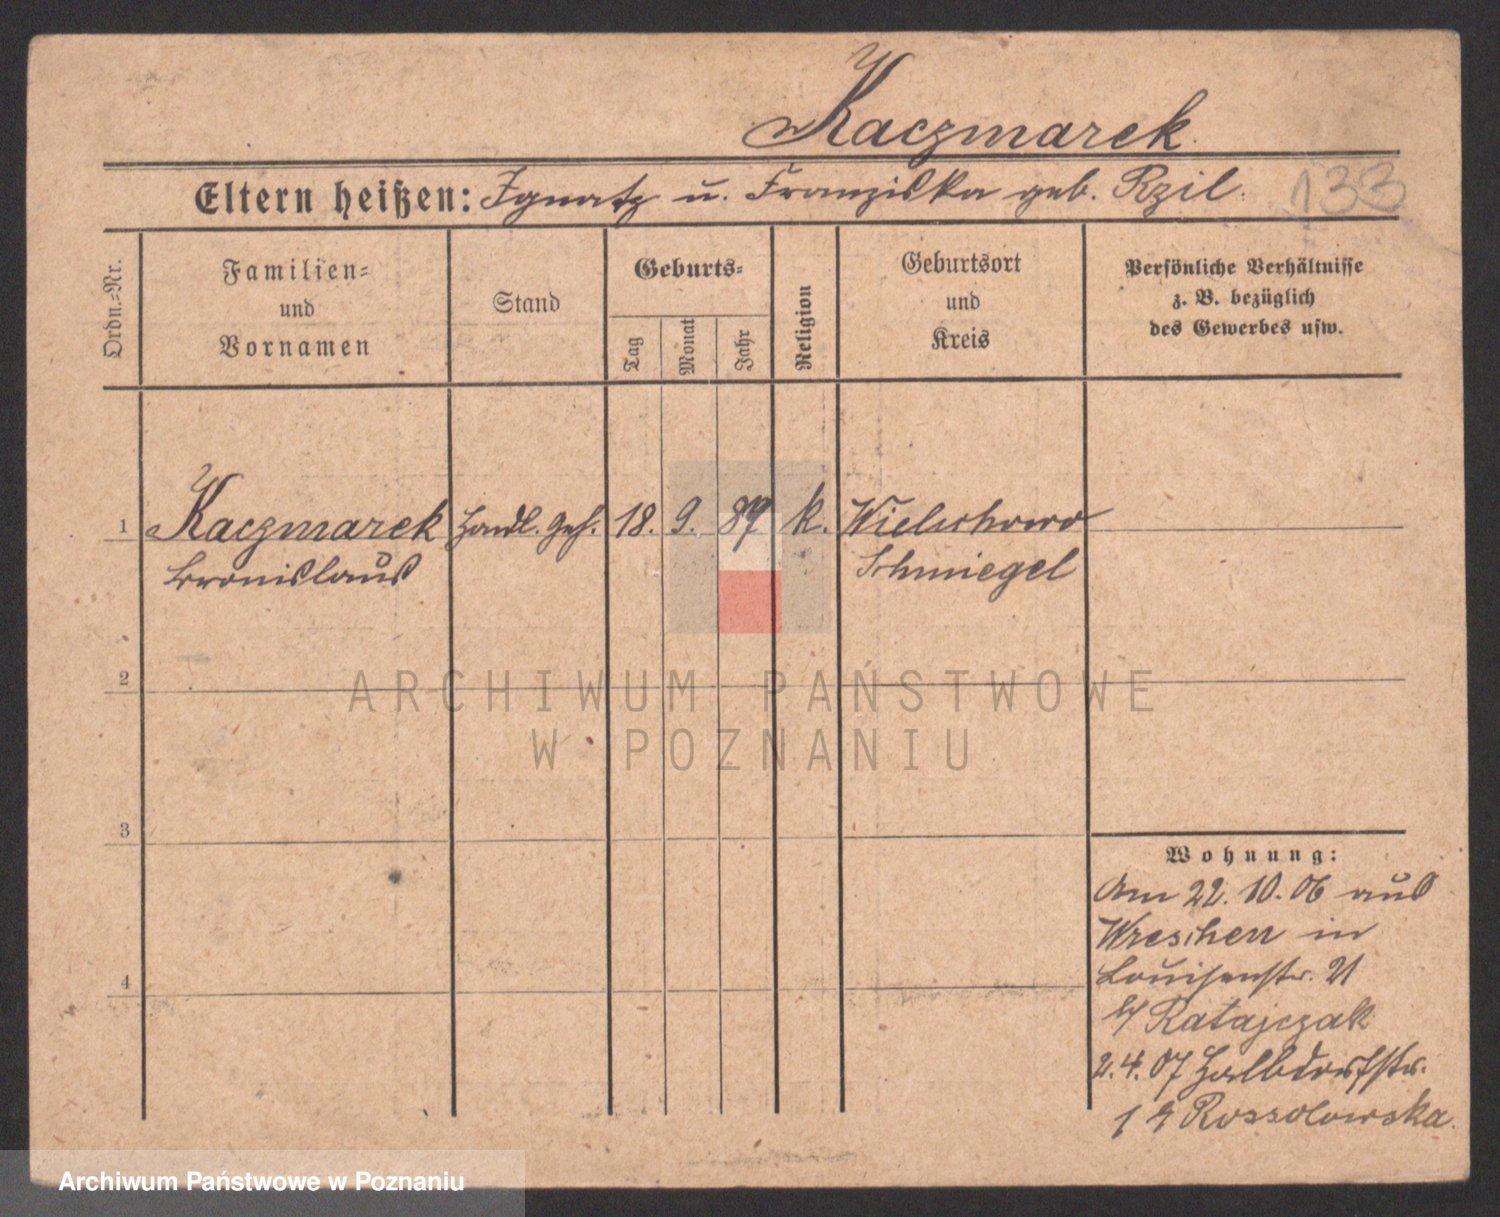 Kaczmarek.
Eltern heißen: Ignatz u. Franziska geb. Rzil.
133
Ordn.-Nr.
Familien-
und
Vornamen
Stand
Geburts-
Tag
Monat
Jahr
Religion
Geburtsort
und
Kreis
Persönliche Verhältnisse
z. B. bezüglich
des Gewerbes usw.
1 Kaczmarek Handl. Geh. 18. 9. 87 k. Wielichowo
Bronislaus Schmiegel
2
ARCHIWUM PAŃSTWOWE
W POZNANIU
3
Wohnung:
Am 22.10.06 aus
Wreschen in
Louisenstr. 21
b/ Ratajczak
4
2.4.07 Halbdorfstr.
1 Rossolowska.
Archiwum Państwowe w Poznaniu